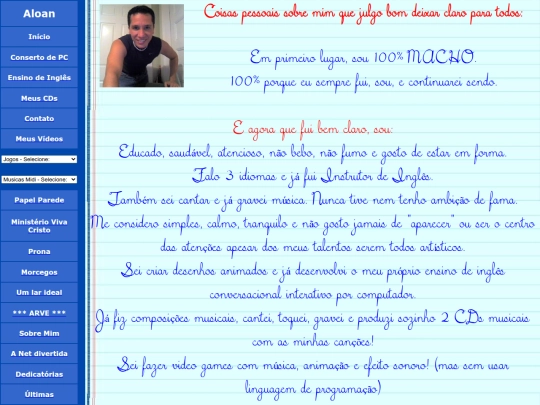 Aloan
Início
Conserto de PC
Ensino de Inglês
Meus CDs
Contato
Meus Vídeos
Jogos - Selecione:
Musicas Midi - Selecione:
Papel Parede
Ministério Viva
Cristo
Prona
Morcegos
Um lar ideal
*** ARVE ***
Sobre Mim
A Net divertida
Dedicatórias
Últimas
Coisas pessoais sobre mim que julgo bom deixar claro para todos:
Em primeiro lugar, sou 100% MACHO.
100% porque eu sempre fui, sou, e continuarei sendo.
E agora que fui bem claro, sou:
Educado, saudável, atencioso, não bebo, não fumo e gosto de estar em forma.
Falo 3 idiomas e já fui Instrutor de Inglês.
Também sei cantar e já gravei música. Nunca tive nem tenho ambição de fama.
Me considero simples, calmo, tranquilo e não gosto jamais de "aparecer" ou ser o centro
das atenções apesar dos meus talentos serem todos artísticos.
Sei criar desenhos animados e já desenvolvi o meu próprio ensino de inglês
conversacional interativo por computador.
Já fiz composições musicais, cantei, toquei, gravei e produzi sozinho 2 CDs musicais
com as minhas canções!
Sei fazer video games com música, animação e efeito sonoro! (mas sem usar
linguagem de programação)